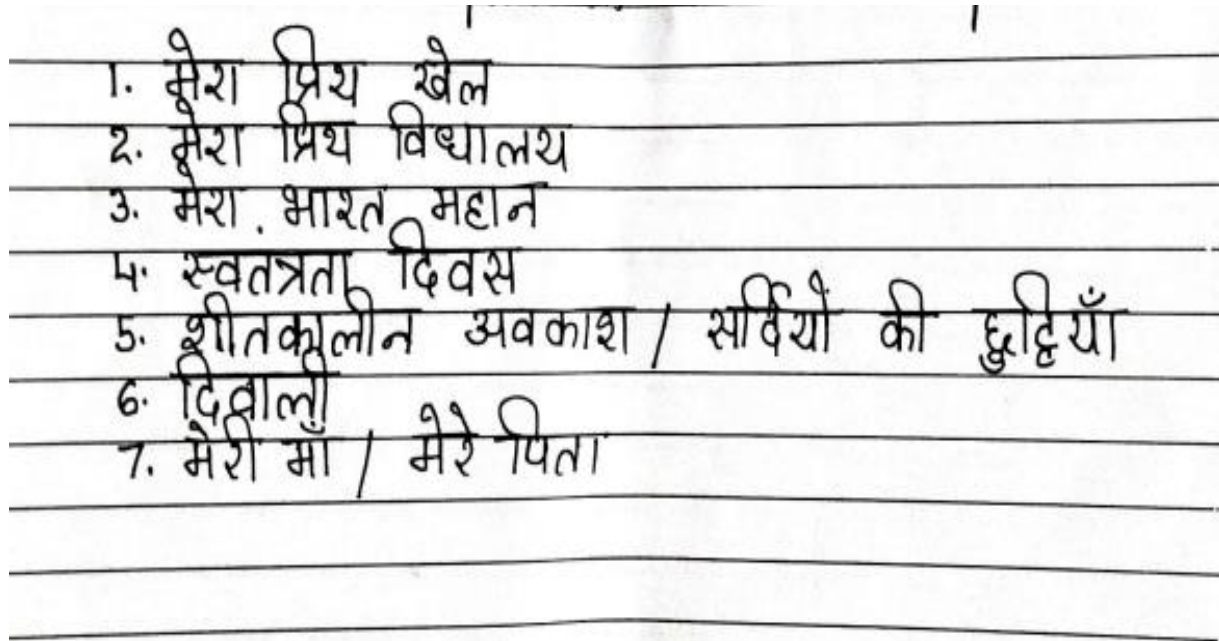 1. मेरा प्रिय खेल
2. मेरा प्रिय विद्यालय
3. मेरा . भारत महान
4. स्वतत्रता दिवस
5. शीतकालीन अवकाश / सर्दियों की छुट्टियाँ
6. दिवाली
7. मेरी माँ / मेरे पिता